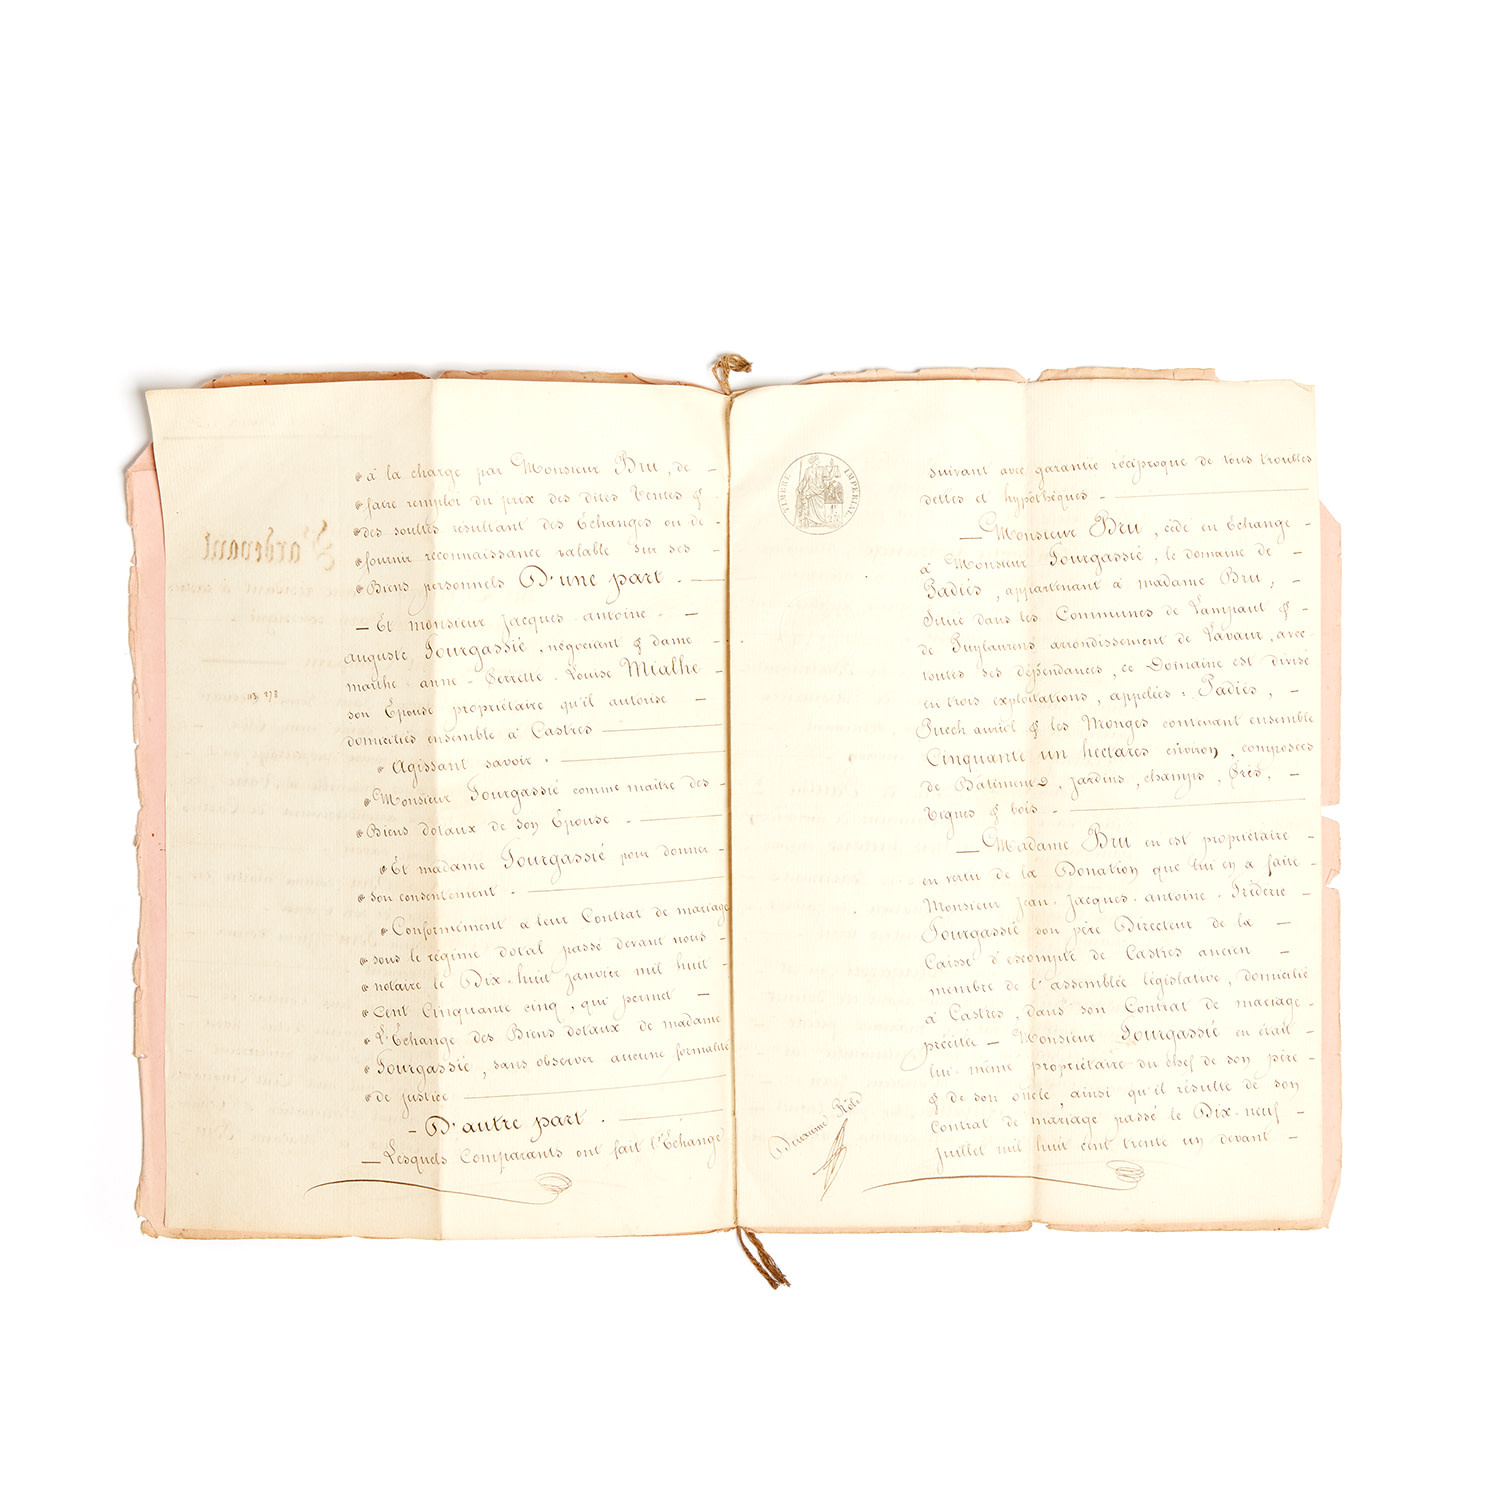 Pardevant
à la charge par Monsieur Bru, de
faire remploi du prix des dites Ventes &
des soultes résultant des Échanges ou de
fournir reconnaissance valable sur ses
Biens personnels D'une part.
Et monsieur Jacques antoine
auguste Fourgassié, négociant & dame
marthe-anne-Perrette-Louise Mialhe
son Épouse propriétaire qu'il autorise
domiciliés ensemble à Castres
Agissant savoir.
Monsieur Fourgassié comme maitre des
Biens dotaux de son Épouse
Et madame Fourgassié pour donner
son consentement.
Conformément a leur Contrat de mariage
sous le régime dotal passé devant nous
notaire le Dix-huit janvier mil huit
cent Cinquante cinq, qui permet
l'Échange des Biens dotaux de madame
Fourgassié, sans observer aucune formalité
de justice
D'autre part.
Lesquels Comparants ont fait l'Échange
TIMBRE IMPÉRIAL
suivant avec garantie réciproque de tous troubles
dettes et hypothèques.
Monsieur Bru, cède en Échange
à Monsieur Fourgassié, le domaine de
Padiés, appartenant à madame Bru,
Situé dans les Communes de Lampaut &
de Puylaurens arrondissement de Lavaur, avec
toutes ses dépendances, ce Domaine est divisé
en trois exploitations, appelées: Padiés,
Puech auriol & les Monges contenant ensemble
Cinquante un hectares environ, composées
de Bâtiments, jardins, champs, Prés,
Vignes & bois.
Madame Bru en est propriétaire
en vertu de la Donation que lui en a faite
Monsieur Jean-Jacques-antoine-Fréderic
Fourgassié son père Directeur de la
Caisse d'escompte de Castres ancien
membre de l'assemblée législative, domicilié
à Castres, dans son Contrat de mariage
précité Monsieur Fourgassié en était
lui-même propriétaire du chef de son père
& de son oncle, ainsi qu'il résulte de son
Contrat de mariage passé le Dix-neuf
juillet mil huit cent trente un devant
Deuxième Rôle